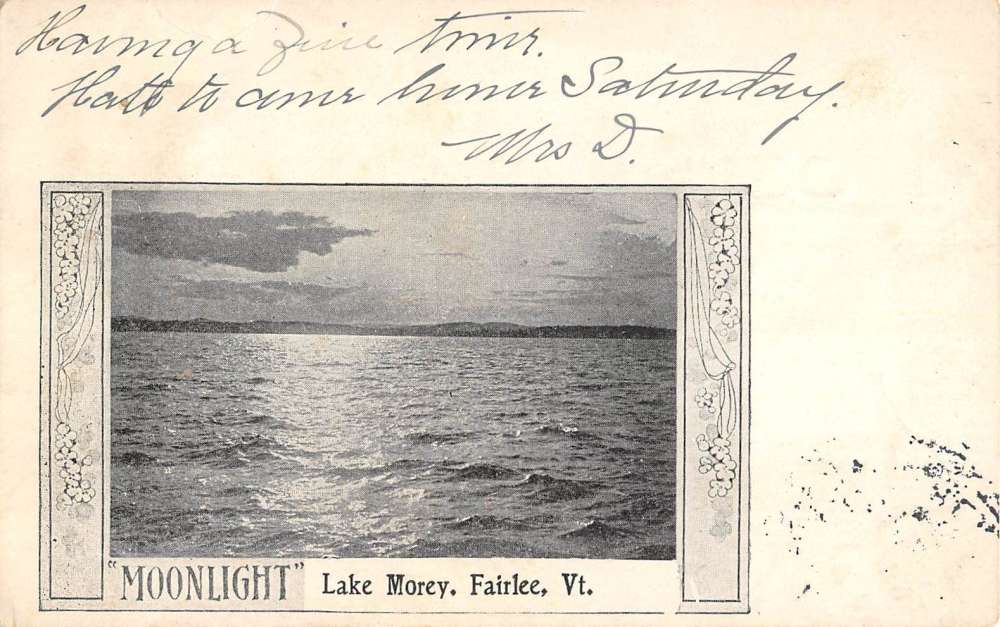 Having a fine time.
Hate to come home Saturday.
Mrs D.
"MOONLIGHT" Lake Morey, Fairlee, Vt.